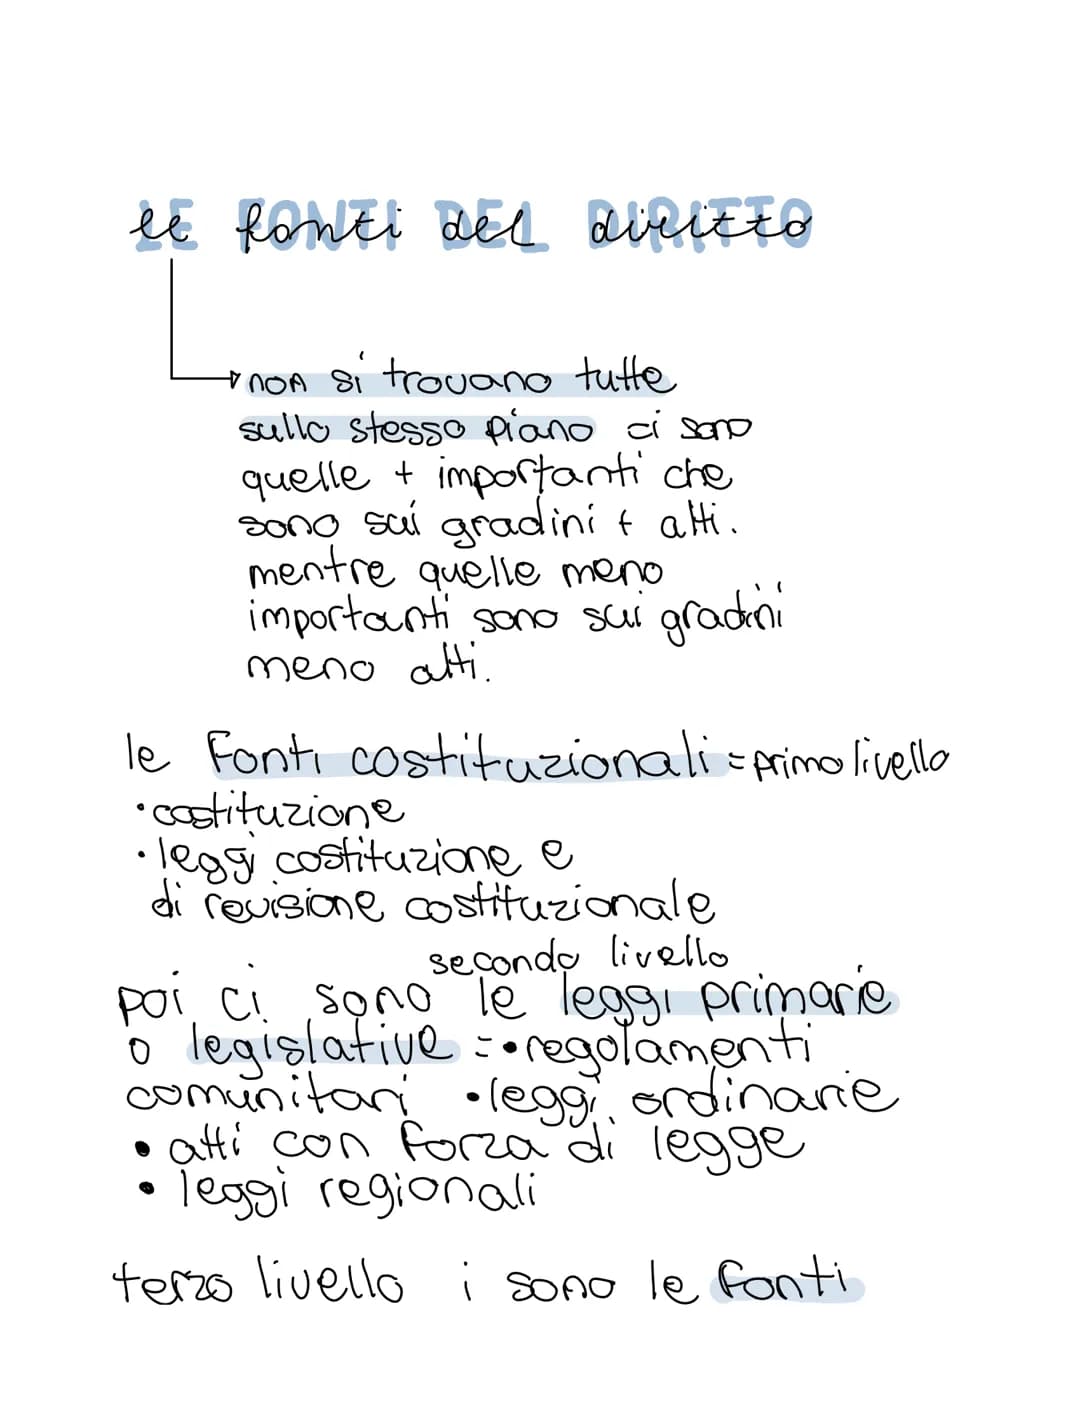 le fonti del diritto
non si trovano tutte
sullo stesso piano ci sono
quelle + importanti che
sono sui gradini + alti.
mentre quelle meno
importanti sono sui gradini
meno alti.
le Fonti costituzionali = primo livello
• costituzione
• leggi costituzione e
di revisione costituzionale
secondo livello
poi ci sono le leggi primarie
o legislative = • regolamenti
comunitari • leggi ordinarie
• atti con forza di legge
• leggi regionali
terzo livello i sono le fonti